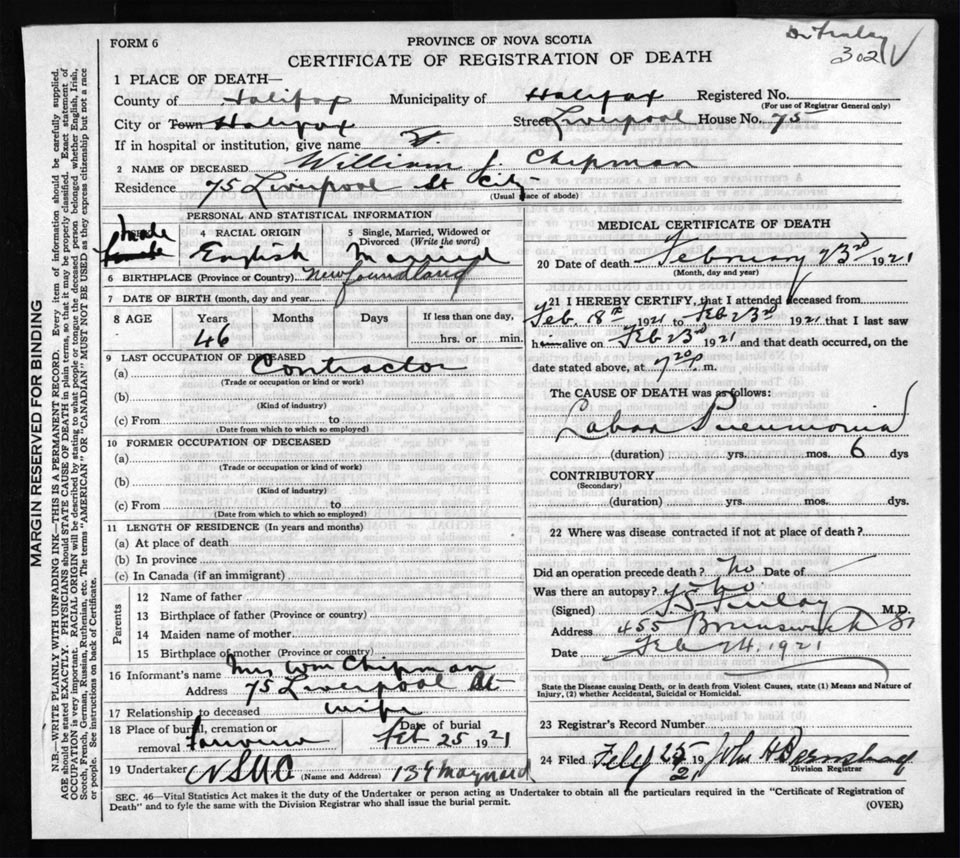 Dr Finlay
302
FORM 6
PROVINCE OF NOVA SCOTIA
CERTIFICATE OF REGISTRATION OF DEATH
1 PLACE OF DEATH—
County of Halifax Municipality of Halifax Registered No.
(For use of Registrar General only)
City or Town Halifax Street Liverpool House No. 75
If in hospital or institution, give name
2 NAME OF DECEASED William J. Chipman
Residence 75 Liverpool St City
(Usual place of abode)
PERSONAL AND STATISTICAL INFORMATION
male
4 RACIAL ORIGIN
English
5 Single, Married, Widowed or Divorced (Write the word)
Married
6 BIRTHPLACE (Province or Country) Newfoundland
7 DATE OF BIRTH (month, day and year)
8 AGE Years Months Days If less than one day,
46 hrs. or min.
9 LAST OCCUPATION OF DECEASED
(a) Contractor
(Trade or occupation or kind or work)
(b)
(Kind of industry)
(c) From to
(Date from which to which so employed)
10 FORMER OCCUPATION OF DECEASED
(a)
(Trade or occupation or kind of work)
(b)
(Kind of industry)
(c) From to
(Date from which to which so employed)
11 LENGTH OF RESIDENCE (In years and months)
(a) At place of death
(b) In province
(c) In Canada (if an immigrant)
Parents
12 Name of father
13 Birthplace of father (Province or country)
14 Maiden name of mother
15 Birthplace of mother (Province or country)
16 Informant's name Mrs Wm Chipman
Address 75 Liverpool St
17 Relationship to deceased wife
18 Place of burial, cremation or removal Fairview
Date of burial
Feb 25 1921
19 Undertaker NSUC (Name and Address) 134 Maynard
MEDICAL CERTIFICATE OF DEATH
20 Date of death February 23rd 1921
(Month, day and year)
21 I HEREBY CERTIFY, that I attended deceased from
Feb. 18th 1921 to Feb 23rd 1921 that I last saw
him alive on Feb 23rd 1921 and that death occurred, on the
date stated above, at 7 20 P. m.
The CAUSE OF DEATH was as follows:
Lobar Pneumonia
(duration) yrs. mos. 6 dys
CONTRIBUTORY
(Secondary)
(duration) yrs. mos. dys.
22 Where was disease contracted if not at place of death?
Did an operation precede death? no Date of
Was there an autopsy? no
(Signed) Finlay M.D.
Address 455 Brunswick St
Date Feb 24. 1921
State the Disease causing Death, or in death from Violent Causes, state (1) Means and Nature of
Injury, (2) whether Accidental, Suicidal or Homicidal.
23 Registrar's Record Number
24 Filed Feby 25 1921 John H
Division Registrar
SEC. 46—Vital Statistics Act makes it the duty of the Undertaker or person acting as Undertaker to obtain all the particulars required in the "Certificate of Registration of
Death" and to fyle the same with the Division Registrar who shall issue the burial permit.
(OVER)
MARGIN RESERVED FOR BINDING
N.B.—WRITE PLAINLY WITH UNFADING INK—THIS IS A PERMANENT RECORD. Every item of information should be carefully supplied.
AGE should be stated EXACTLY. PHYSICIANS should STATE CAUSE OF DEATH in plain terms, so that it may be properly classified. Exact statement of
OCCUPATION is very important. RACIAL ORIGIN will be described by stating to what people or tongue the deceased person belonged whether English, Irish,
Scotch, French, German, Russian, Ruthenian, etc. The terms "AMERICAN" OR "CANADIAN" MUST NOT BE USED as they express citizenship but not a race
or people. See instructions on back of Certificate.